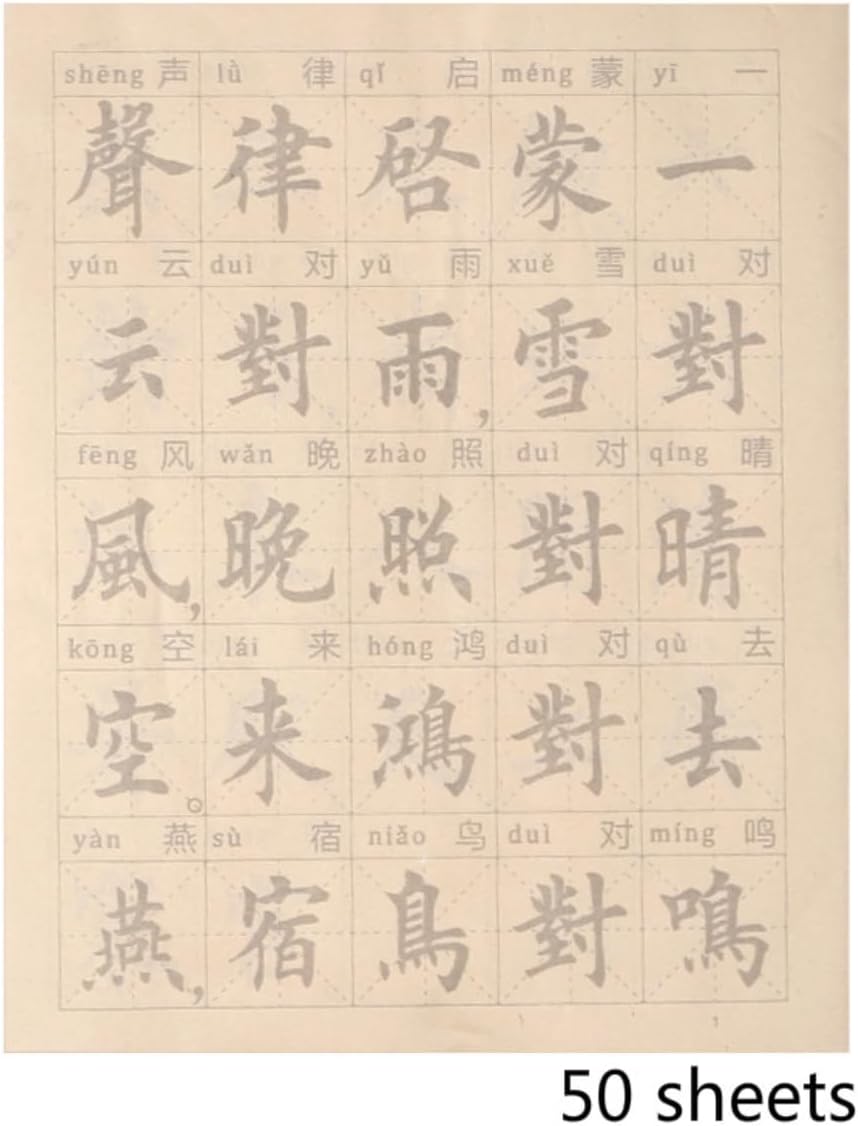 shēng 声 lǜ 律 qǐ 启 méng 蒙 yī 一
聲律啓蒙一
yún 云 duì 对 yǔ 雨 xuě 雪 duì 对
云對雨,雪對
fēng 风 wǎn 晚 zhào 照 duì 对 qíng 晴
風,晚照對晴
kōng 空 lái 来 hóng 鸿 duì 对 qù 去
空。来鴻對去
yàn 燕 sù 宿 niǎo 鸟 duì 对 míng 鸣
燕,宿鳥對鳴
50 sheets